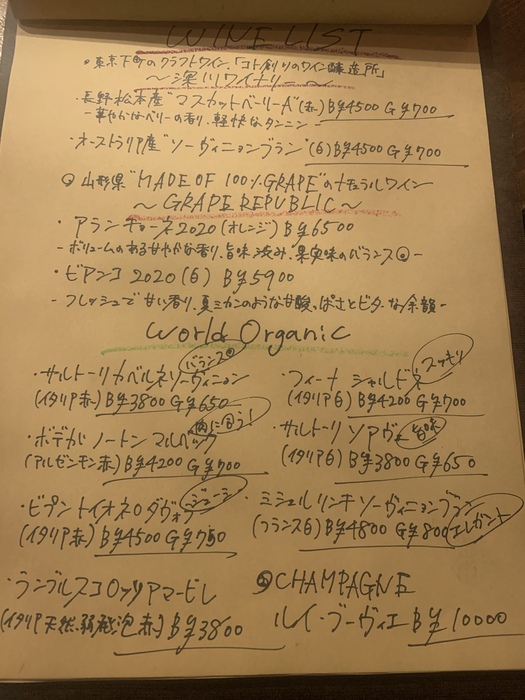 WINE LIST
・東京下町のクラフトワイン、「コト創りのワイン醸造所」
〜深川ワイナリー〜
・長野松本産"マスカットベーリーA"(赤) B¥4500 G¥700
- 華やかなベリーの香り、軽快なタンニン -
・オーストラリア産"ソーヴィニョンブラン"(白) B¥4500 G¥700
◎山形県"MADE OF 100% GRAPE"のナチュラルワイン
〜GRAPE REPUBLIC〜
・アランチョーネ2020(オレンジ) B¥6500
- ボリュームのある甘やかな香り、旨味、渋み、果実味のバランス◎ -
・ビアンコ 2020(白) B¥5900
- フレッシュで甘い香り、夏ミカンのような甘酸っぱさとビターな余韻 -
World Organic
バランス◎
・サルトーリ カベルネソーヴィニョン
(イタリア赤) B¥3800 G¥650
肉に合う!
・ボデガ ノートン マルベック
(アルゼンチン赤) B¥4200 G¥700
ジューシー
(イタリア赤) B¥4500 G¥750
・ランブルスコ ロッソ アマービレ
(イタリア天然弱発泡赤) B¥3800
スッキリ
・フィーナ シャルドネ
(イタリア白) B¥4200 G¥700
・サルトーリ ソアヴェ 旨味
(イタリア白) B¥3800 G¥650
・ミシェルリンチ ソーヴィニョンブラン
(フランス白) B¥4800 G¥800 エレガント
◎CHAMPAGNE
ルイ・ブーヴィエ B¥10000